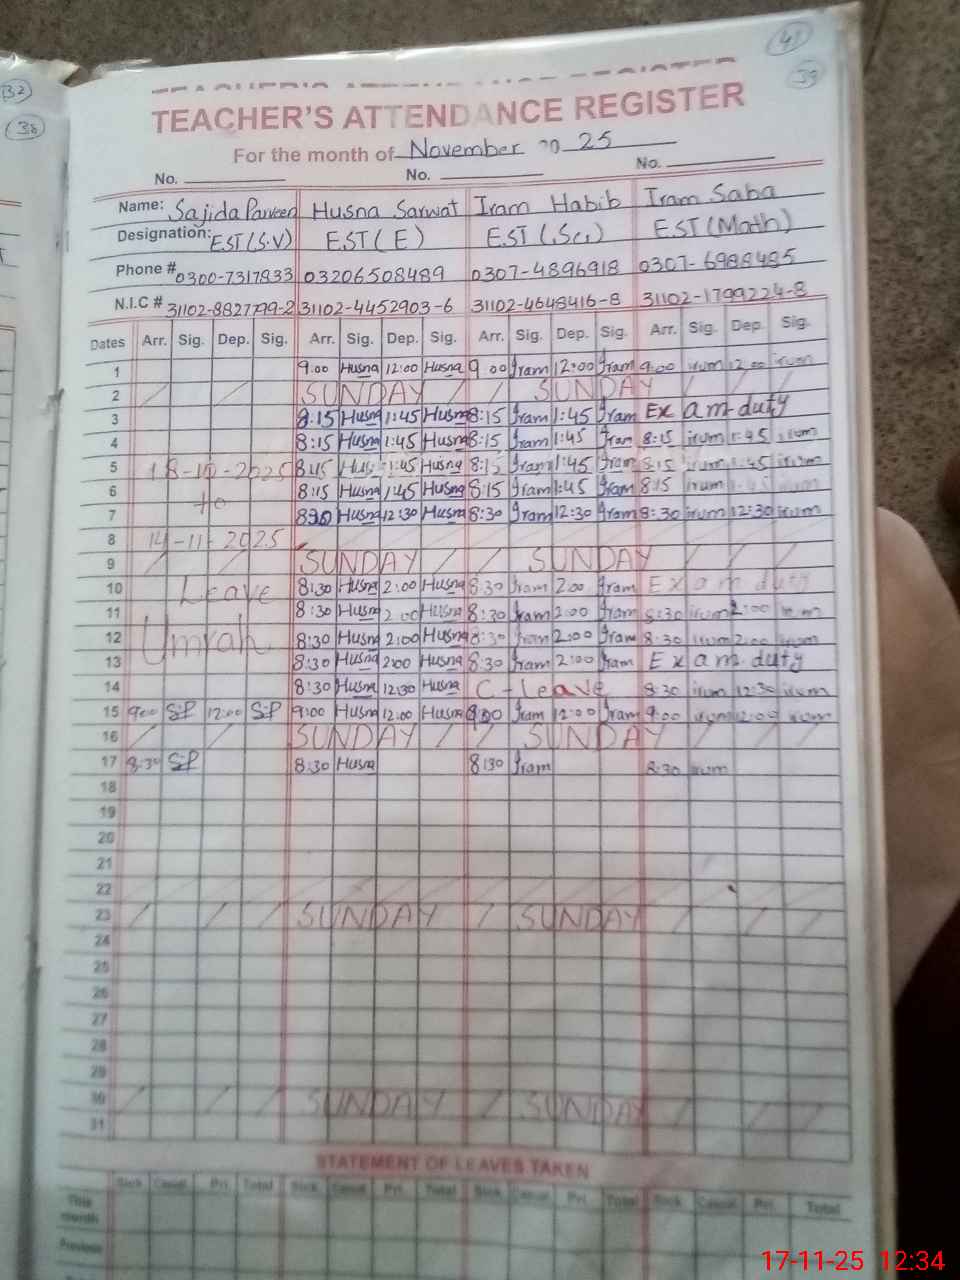 32
38
41
39
TEACHER'S ATTENDANCE REGISTER
For the month of November 20 25
No. No. No.
Name: Sajida Parveen Husna Sarwat Iram Habib Iram Saba
Designation: EST(S.V) EST(E) EST(Sci) EST(Math)
Phone # 0300-7317833 03206508489 0307-4896918 0307-6988485
N.I.C # 31102-8827799-2 31102-4452903-6 31102-4648416-8 31102-1799224-8
Dates Arr. Sig. Dep. Sig. Arr. Sig. Dep. Sig. Arr. Sig. Dep. Sig. Arr. Sig. Dep. Sig.
1 9:00 Husna 12:00 Husna 9 00 Iram 12:00 Iram 9:00 irum 12:00 irum
2 SUNDAY SUNDAY
3 8:15 Husna 1:45 Husna 8:15 Iram 1:45 Iram Exam duty
4 8:15 Husna 1:45 Husna 8:15 Iram 1:45 Iram 8:15 irum 1:45 irum
5 18-10-2025 8:15 Husna 1:45 Husna 8:15 Iram 1:45 Iram 8:15 irum 1:45 irum
6 to 8:15 Husna 1:45 Husna 8:15 Iram 1:45 Iram 8:15 irum 1:45 irum
7 8:30 Husna 12:30 Husna 8:30 Iram 12:30 Iram 8:30 irum 12:30 irum
8 14-11-2025
9 SUNDAY SUNDAY
10 Leave 8:30 Husna 2:00 Husna 8:30 Iram 2:00 Iram Exam duty
11 8:30 Husna 2:00 Husna 8:30 Iram 2:00 Iram 8:30 irum 2:00 irum
12 Umrah 8:30 Husna 2:00 Husna 8:30 Iram 2:00 Iram 8:30 irum 2:00 irum
13 8:30 Husna 2:00 Husna 8:30 Iram 2:00 Iram Exam duty
14 8:30 Husna 12:30 Husna C-Leave 8:30 irum 12:30 irum
15 9:00 SP 12:00 SP 9:00 Husna 12:00 Husna 9:00 Iram 12:00 Iram 9:00 irum 12:00 irum
16 SUNDAY SUNDAY
17 8:30 SP 8:30 Husna 8:30 Iram 8:30 irum
18
19
20
21
22
23 SUNDAY SUNDAY
24
25
26
27
28
29
30 SUNDAY SUNDAY
31
STATEMENT OF LEAVES TAKEN
Sick Casual Pri. Total Sick Casual Pri. Total Sick Casual Pri. Total Sick Casual Pri. Total
This month
Previous
17-11-25 12:34